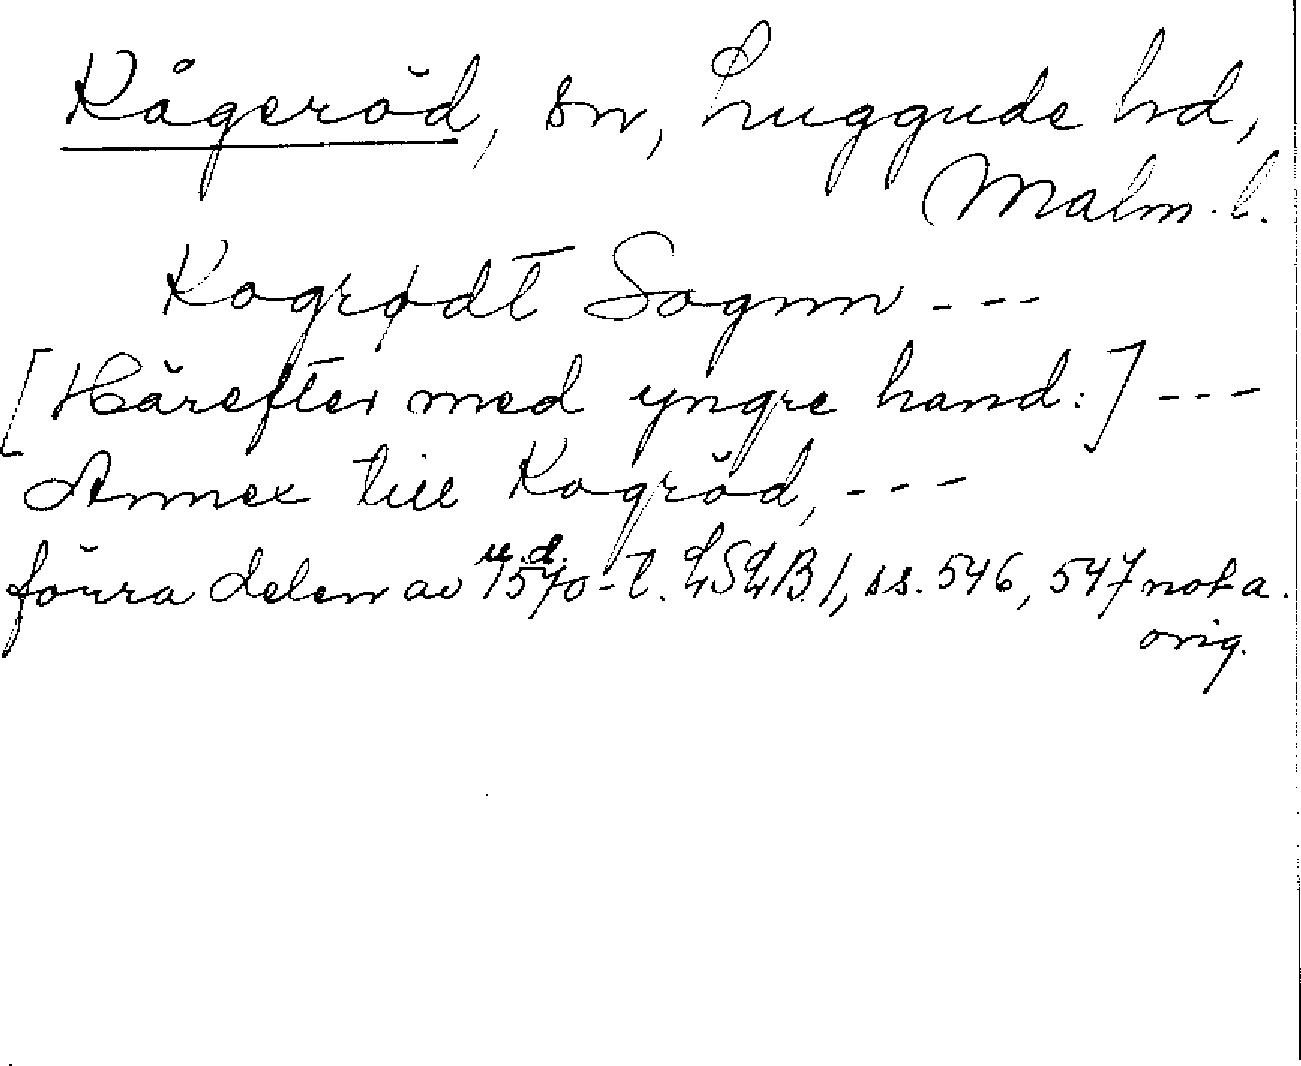 Kågeröd, sn, Luggude hd,
Malm. l.
Kogrødt Sognn ---
[Härefter med yngre hand:] ---
Annex till Kogröd, ---
u.d.
förra delen av 1570-t. LSLB 1, ss. 546, 547 not a.
orig.